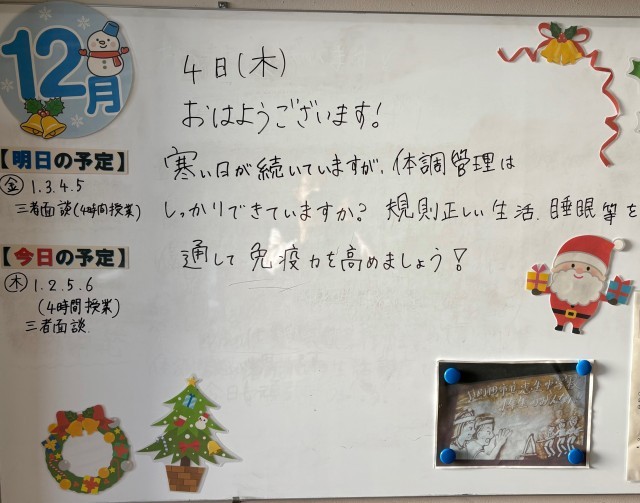 12月
4日(木)
おはようございます!
寒い日が続いていますが、体調管理は
しっかりできていますか? 規則正しい生活、睡眠等を
通して免疫力を高めましょう!
【明日の予定】
金 1.3.4.5
三者面談(4時間授業)
【今日の予定】
木 1.2.5.6
(4時間授業)
三者面談